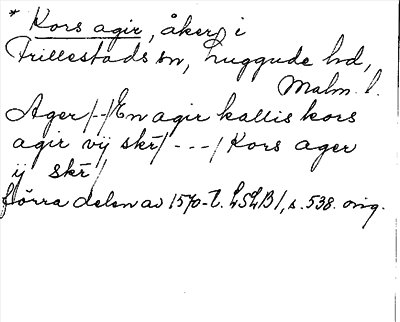 * Kors agir, åker i
Frillestads sn, Luggude hd,
Malm. l.
Ager/--/En agir kallis kors
agir vij skr̄/---/Kors ager
ij skr̄/
Norra delen av 1570-t. LSLB1, s. 538. orig.